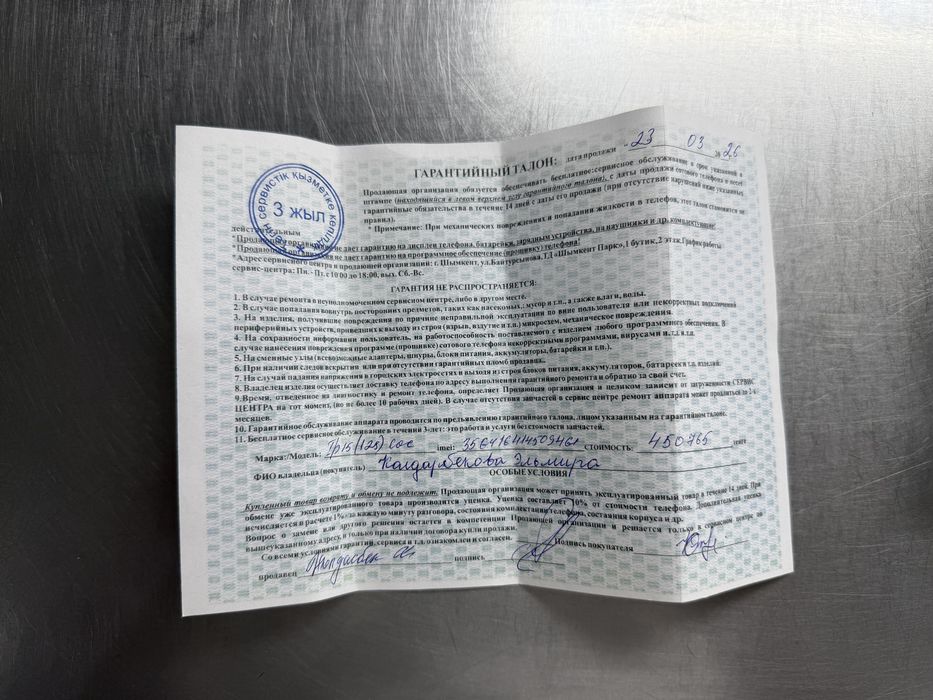 ГАРАНТИЙНЫЙ ТАЛОН: дата продажи 23 03 2026
Продающая организация обязуется обеспечивать бесплатное: сервисное обслуживание в срок указанный в
штампе (находящийся в левом верхнем углу гарантийного талона), с даты продажи сотового телефона и несет
гарантийные обязательства в течение 14 дней с даты его продажи (при отсутствие нарушений ниже указанных
правил).
* Примечание: При механических повреждениях и попадании жидкости в телефон, этот талон становится не
действительным
сервистік қызметке кепілдік
3 ЖЫЛ
* Продающая организация не дает гарантию на дисплей телефона, батарейки, зарядные устройства, на наушники и др. комплектующие!
* Продающая организация не дает гарантию на программное обеспечение (прошивку) телефона!
* Адрес сервисного центра и продающей организаций: г. Шымкент, ул.Байтурсынова, ТД «Шымкент Парк», 1 бутик, 2 этаж. График работы
сервис-центра: Пн.- Пт. с 10:00 до 18:00, вых. Сб.-Вс.
ГАРАНТИЯ НЕ РАСПРОСТРАНЯЕТСЯ:
1. В случае ремонта в неуполномоченном сервисном центре, либо в другом месте.
2. В случае попадания вовнутрь, посторонних предметов, таких как насекомых,: мусор и т.п., а также влаги, воды.
3. На изделия, получившие повреждения по причине неправильной эксплуатации по вине пользователя или некорректных подключений
периферийных устройств, приведших к выходу из строя (взрыв, вздутие и т.п.) микросхем, механическое повреждения.
4. На сохранности информации пользователь, на работоспособность поставляемого с изделием любого программного обеспечения. В
случае нанесения повреждения программе (прошивке) сотового телефона некорректными программами, вирусами и.т.д. и т.п.
5. На сменные узлы (всевозможные адаптеры, шнуры, блоки питания, аккумуляторы, батарейки и т.п.).
6. При наличий следов вскрытия или при отсутствии гарантийных пломб продавца.
7. На случай падания напряжения в городских электросетях и выхода из строя блоков питания, аккумуляторов, батареек и т.п. изделий.
8. Владелец изделия осуществляет доставку телефона по адресу выполнения гарантийного ремонта и обратно за свой счет.
9. Время, отведенное на диагностику и ремонт телефона, определяет Продающая организация и целиком зависит от загруженности СЕРВИС
ЦЕНТРА на тот момент, (но не более 10 рабочих дней). В случае отсутствия запчастей в сервис центре ремонт аппарата может продлиться до 2-х
месяцев.
10. Гарантийное обслуживание аппарата проводится по предъявлению гарантийного талона, лицом указанным на гарантийном талоне.
11. Бесплатное сервисное обслуживание в течение 3-лет: это работа и услуги без стоимости запчастей.
Марка:/Модель: imei: СТОИМОСТЬ: 450765 тенге
ФИО владельца (покупатель) Калдарбекова Эльмира
ОСОБЫЕ УСЛОВИЯ
Купленный товар возврату и обмену не подлежит. Продающая организация может принять эксплуатированный товар в течение 14 дней. При
обмене уже эксплуатированного товара производится уценка. Уценка составляет 10% от стоимости телефона. Дополнительная уценка
исчисляется в расчете 1% за каждую минуту разговора, состояния комплектации телефона, состояния корпуса и др.
Вопрос о замене или другого решения остается в компетенции Продающей организации и решается только в сервисном центре по
вышеуказанному адресу, и только при наличии договора купли продажи.
Со всеми условиями гарантий, сервиса и т.п. ознакомлен и согласен. Подпись покупателя
продавец подпись